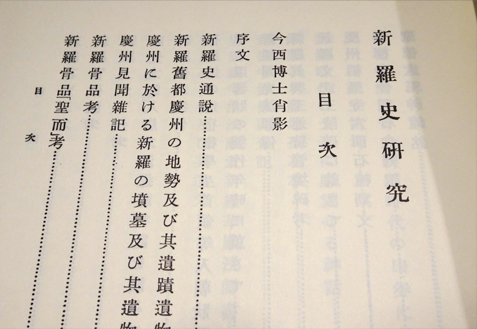 新羅史研究
目次
今西博士肖影
序文
新羅史通說
新羅舊都慶州の地勢及び其遺蹟遺物
慶州に於ける新羅の墳墓及び其遺物
慶州見聞雜記
新羅骨品考
新羅骨品聖而考
目次